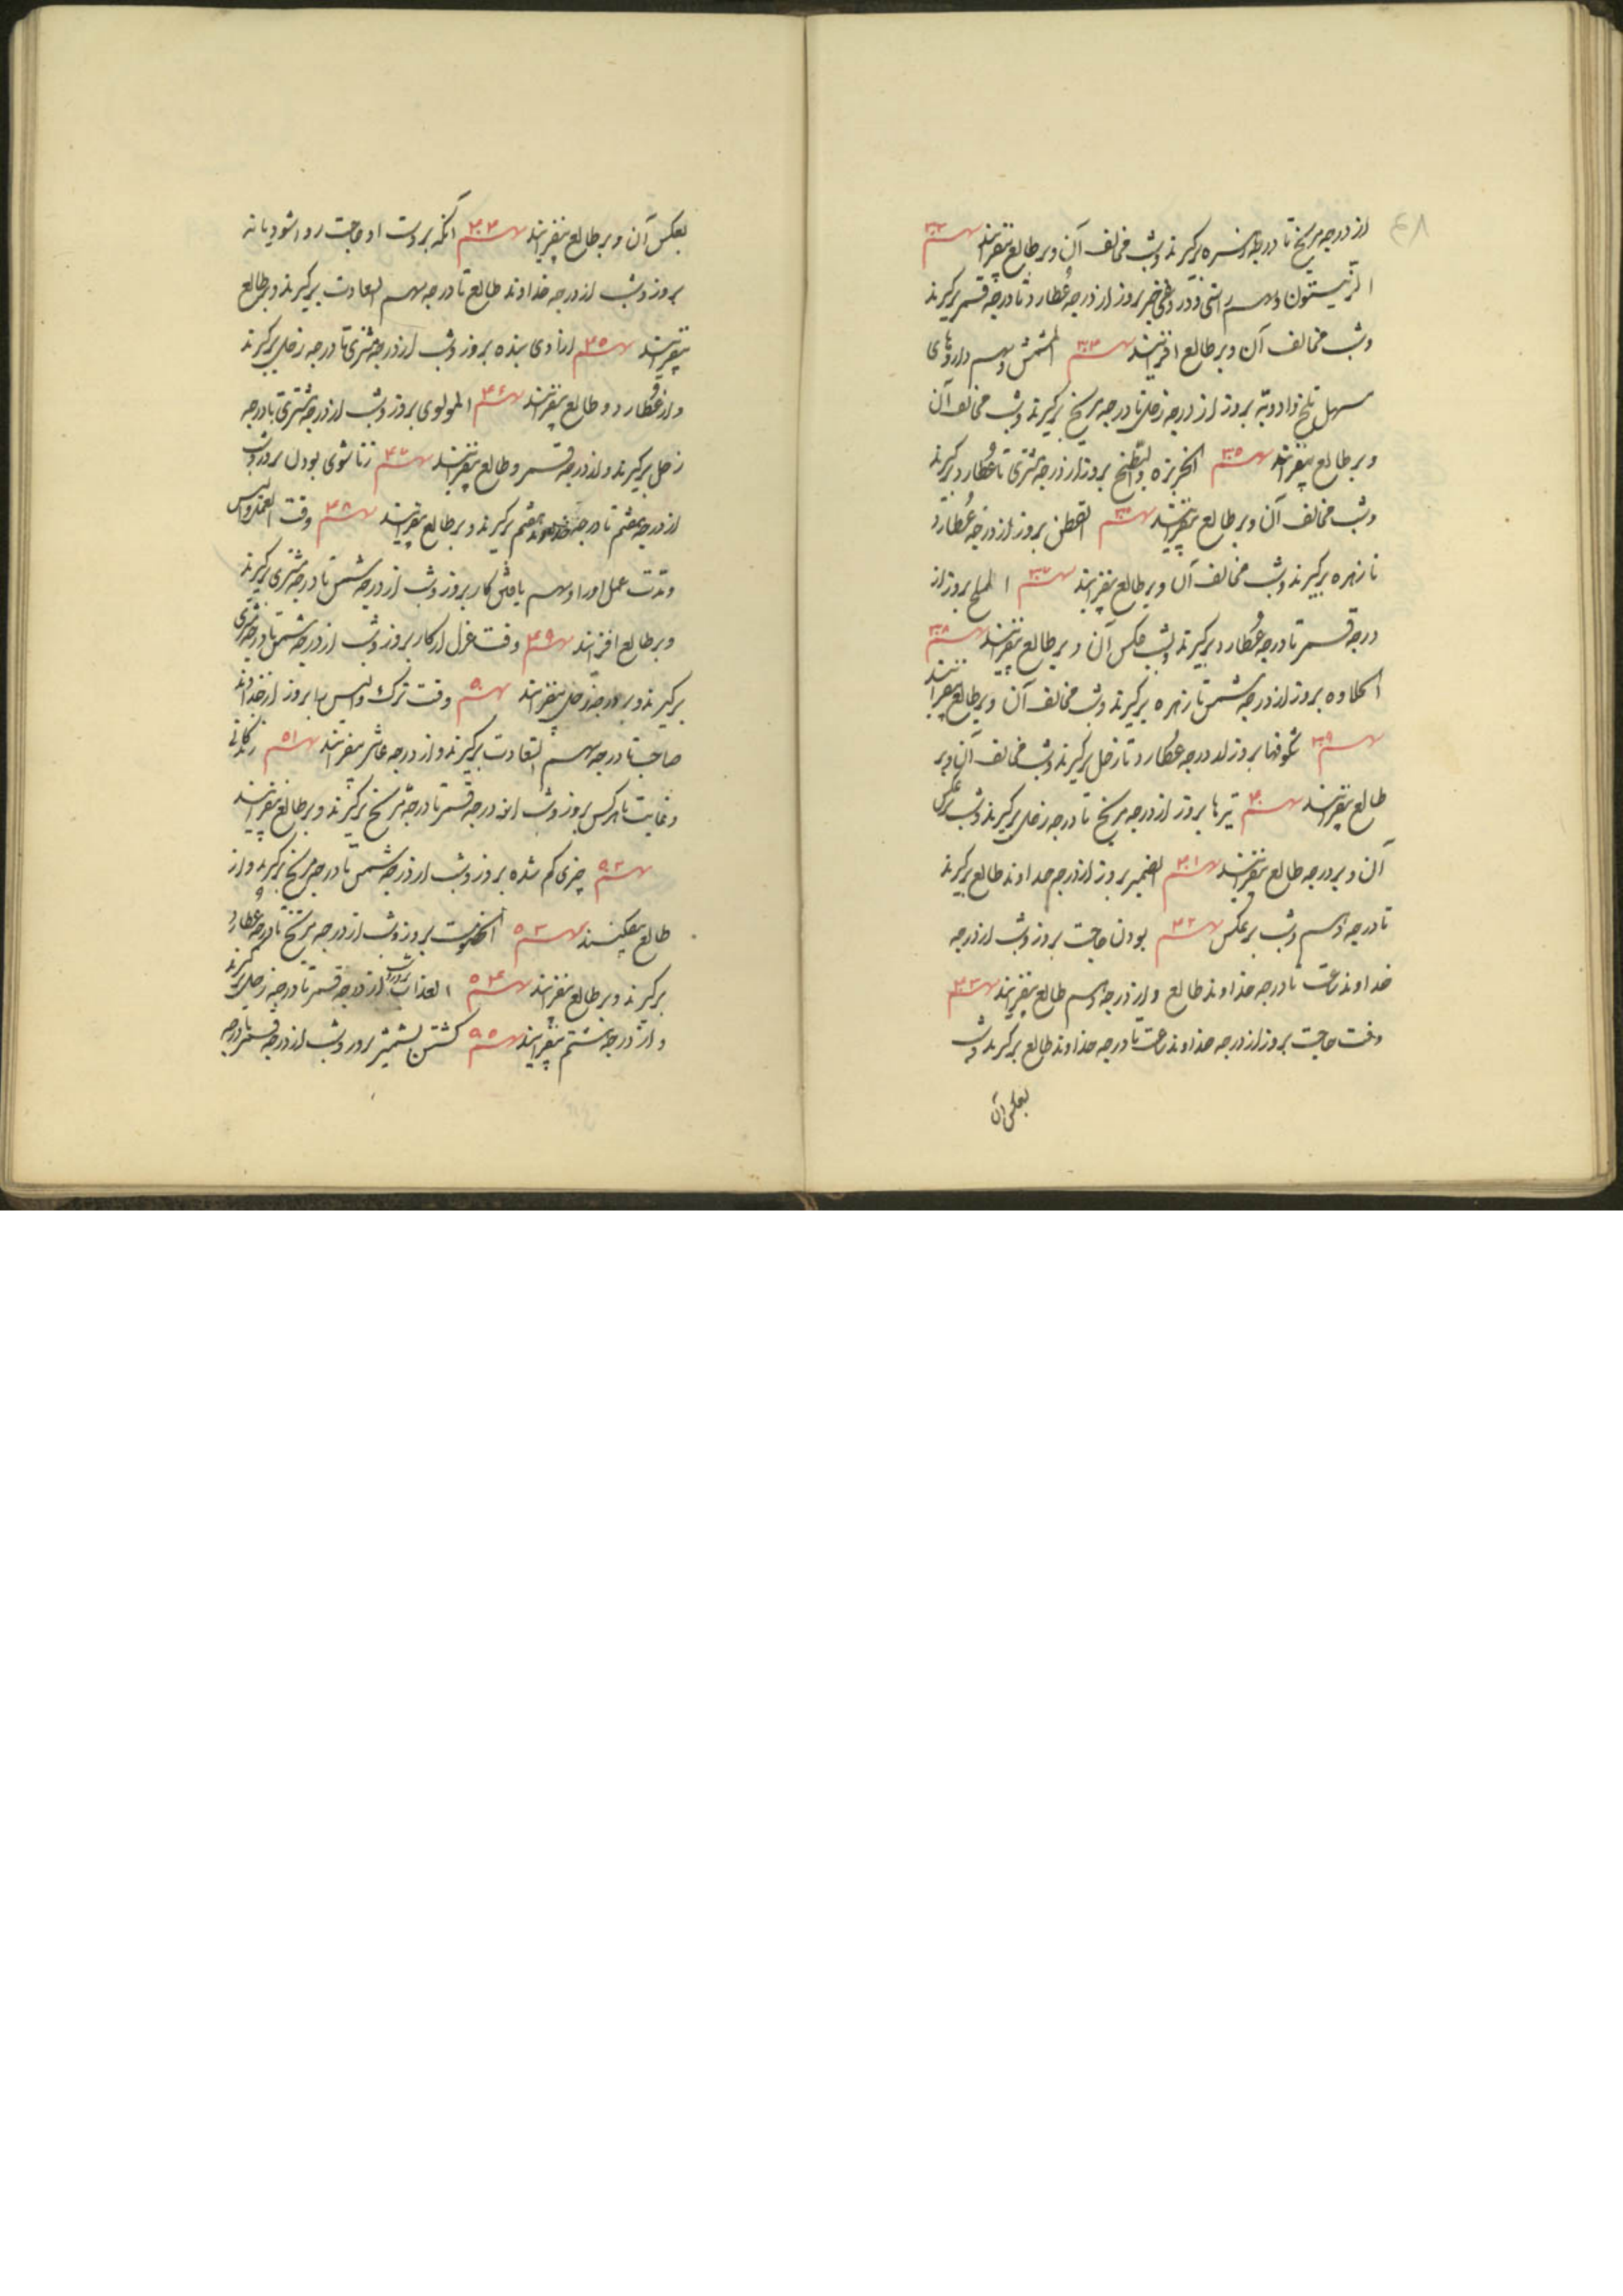 ٤٨
از درجه مریخ تا درجه زهره برکیرند وبشب مخالف آن وبر طالع بیفزایند سهم ۳۳
الزیتون وسهم راستی ودروغی خبر بروز از درجه عطارد تا درجه قمر برکیرند
وبشب مخالف آن وبر طالع افزایند سهم ۳۴ المشمش وسهم داروهای
مسهل تلخ بروز از درجه زحل تا درجه مریخ برکیرند وبشب مخالف آن
وبر طالع بیفزایند سهم ۳۵ الخربزه والبطیخ بروز از درجه مشتری تا عطارد برکیرند
وبشب مخالف آن وبر طالع بیفزایند سهم القطن بروز از درجه عطارد
تا زهره برکیرند وبشب مخالف آن وبر طالع بیفزایند سهم ۳۷ الملح بروز از
درجه قمر تا درجه عطارد برکیرند وبشب عکس آن وبر طالع بیفزایند سهم ۳۸
الحلاوه بروز از درجه شمس تا زهره برکیرند وبشب مخالف آن وبر طالع بیفزایند
سهم ۳۹ شکوفها بروز از درجه عطارد تا زحل برکیرند وبشب مخالف آن وبر
طالع بیفزایند سهم ۴۰ تیرها بروز از درجه مریخ تا درجه زحل برکیرند وبشب برعکس
آن وبر درجه طالع بیفزایند سهم ۴۱ الضمیر بروز از درجه خداوند طالع برکیرند
تا درجه دهم وبشب برعکس سهم ۴۲ بودن حاجت بروز وبشب از درجه
خداوند ساعت تا درجه خداوند طالع واز درجه دهم طالع بیفزایند سهم ۴۳
وقت حاجت بروز از درجه خداوند ساعت تا درجه خداوند طالع برکیرند وبشب
بعکس آن
بعکس آن وبر طالع بیفزایند سهم ۴۴ آنکه بر دست او حاجت روا شود یا نه
بروز وبشب از درجه خداوند طالع تا درجه سهم السعادت برکیرند وبر طالع
بیفزایند سهم ۴۵ ازادی بنده بروز وبشب از درجه مشتری تا درجه زحل برکیرند
واز عطارد وطالع بیفزایند سهم ۴۶ المولوی بروز وبشب از درجه مشتری تا درجه
زحل برکیرند واز درجه قمر وطالع بیفزایند سهم ۴۷ زناشوی بودن بروز وشب
از درجه هفتم تا درجه خداوند هفتم برکیرند وبر طالع بیفزایند سهم ۴۸ وقت العمل
ومدت عمل اورا وسهم یافتن کار بروز وشب از درجه شمس تا درجه مشتری برکیرند
وبر طالع افزایند سهم ۴۹ وقت عزل از کار بروز وشب از درجه شمس تا درجه مشتری
برکیرند وبر درجه زحل بیفزایند سهم ۵۰ وقت ترک بروز از خداوند
صاحب تا درجه سهم السعادت برکیرند واز درجه عاشر بیفزایند سهم ۵۱ زندکانی
با هرکس بروز وشب از درجه قمر تا درجه مریخ برکیرند وبر طالع بیفزایند
سهم ۵۲ چیزی کم شده بروز وشب از درجه شمس تا درجه مریخ برکیرند واز
طالع بیفکنند سهم ۵۳ الخصومت بروز وشب از درجه مریخ تا درجه عطارد
برکیرند وبر طالع بیفزایند سهم ۵۴ العذاب بروز وشب از درجه قمر تا درجه زحل برکیرند
واز درجه هشتم بیفزایند سهم ۵۵ کشتن بشمشیر بروز وشب از درجه قمر تا درجه